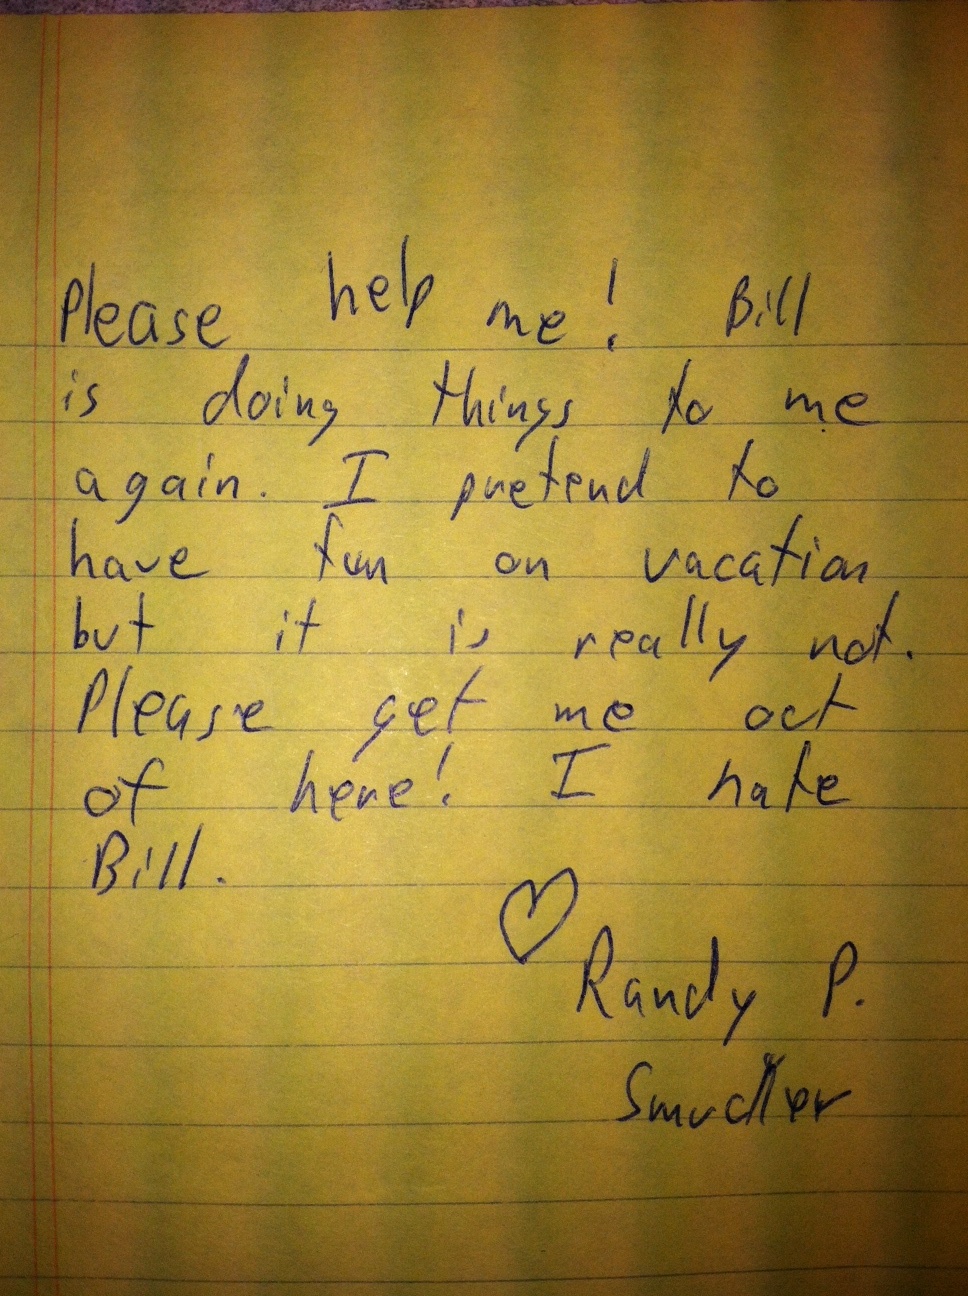 Please help me! Bill
is doing things to me
again. I pretend to
have fun on vacation
but it is really not.
Please get me out
of here! I hate
Bill.
♡ Randy P.
Smucker